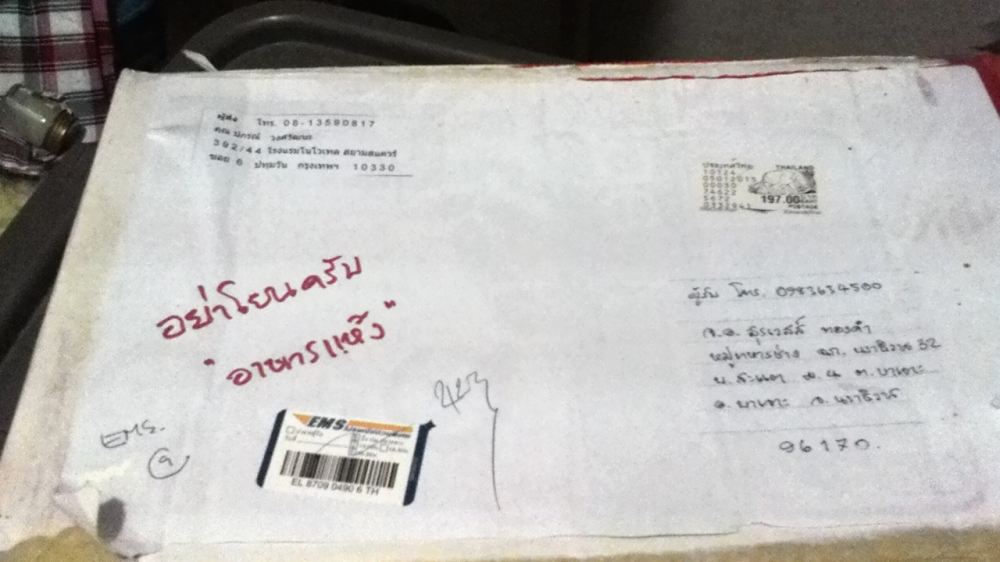 ผู้ส่ง โทร. 08-13590817
คุณ ปกรณ์ วงศ์รัตนะ
392/44 โรงแรมโนโวเทล สยามสแควร์
ซอย 6 ปทุมวัน กรุงเทพฯ 10330
ประเทศไทย THAILAND
10124
05012015
00030
74622
5672
0332941
197.00 บาท
POSTAGE
อย่าโยนครับ
"อาหารแห้ง"
ผู้รับ โทร. 0983634500
จ.อ. สุรเวสส์ ทองคำ
หมู่ทหารช่าง ฉก. นราธิวาส 32
ม. 4 ต. บาเจาะ
อ. บาเจาะ จ. นราธิวาส
96170.
EMS.
EMS
EL 8709 0490 6 TH